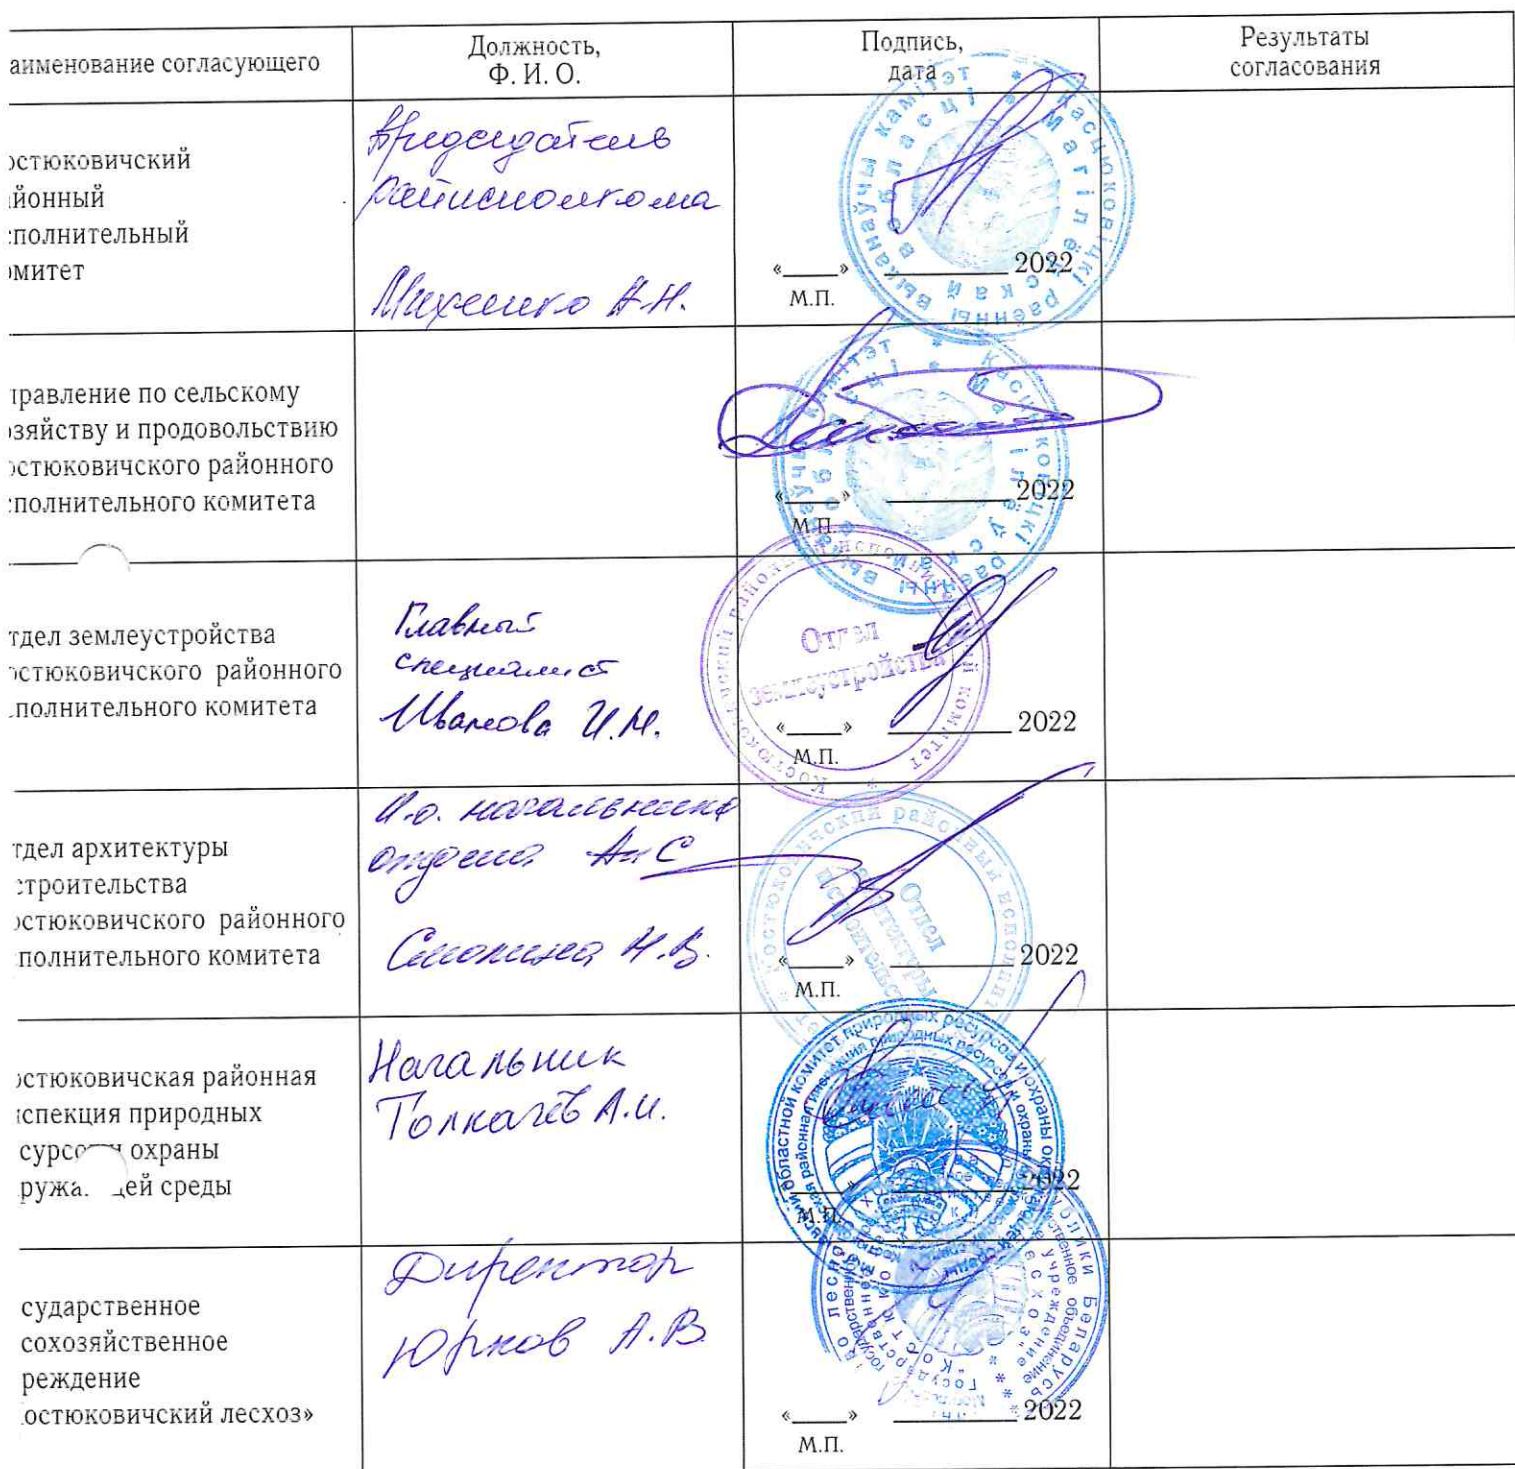 аименование согласующего
Должность,
Ф. И. О.
Подпись,
дата
Результаты
согласования
остюковичский
йонный
сполнительный
омитет
Председатель
райисполкома
Михеенко А.Н.
«____» ________ 2022
М.П.
правление по сельскому
озяйству и продовольствию
остюковичского районного
сполнительного комитета
«____» ________ 2022
М.П.
тдел землеустройства
остюковичского районного
сполнительного комитета
Главный
специалист
Иванова И.М.
Отдел
землеустройства
«____» ________ 2022
М.П.
тдел архитектуры
строительства
остюковичского районного
полнительного комитета
И.о. начальника
отдела АиС
Н.В.
«____» ________ 2022
М.П.
остюковичская районная
спекция природных
сурсов и охраны
ружа ей среды
Начальник
Толкачёв А.И.
2022
М.П.
сударственное
сохозяйственное
реждение
остюковичский лесхоз»
Директор
Юрков А.В.
«____» ________ 2022
М.П.